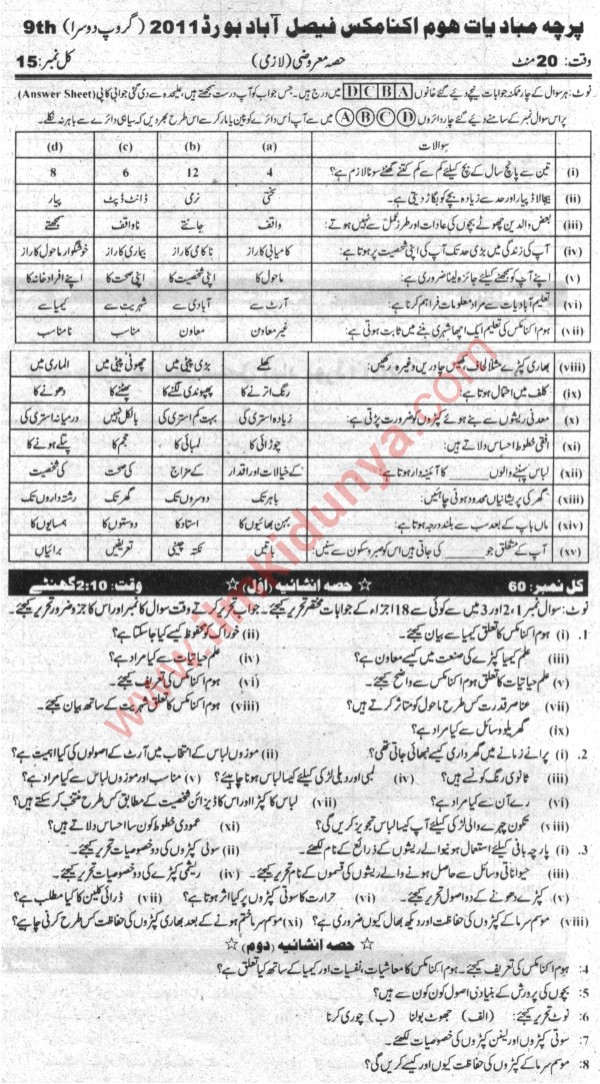 پرچہ مبادیات ھوم اکنامکس فیصل آباد بورڈ 2011 (گروپ دوسرا) 9th
وقت: 20 منٹ حصہ معروضی (لازمی) کل نمبر: 15
نوٹ: ہر سوال کے چار ممکنہ جوابات نیچے دیئے گئے خانوں D C B A میں درج ہیں۔ جس جواب کو آپ درست سمجھتے ہیں، علیحدہ دی گئی جوابی کاپی (Answer Sheet)
پر اس سوال نمبر کے سامنے دیئے گئے چار دائروں A B C D میں سے آپ اُس دائرے کو پین یا مارکر سے اس طرح بھر دیں کہ سیاہی دائرے سے باہر نہ نکلے۔
سوالات (a) (b) (c) (d)
(i) تین سے پانچ سال کے بچے کیلئے کم سے کم کتنے گھنٹے سونا لازم ہے؟ 4 12 6 8
(ii) بیجا لاڈ پیار اور حد سے زیادہ بچے کو بگاڑ دیتی ہے۔ سختی نرمی ڈانٹ ڈپٹ پیار
(iii) بعض والدین چھوٹے بچوں کی عادات اور طرزِ عمل سے نہیں ہوتے: واقف جانتے ناواقف سمجھتے
(iv) آپ کی زندگی میں بڑی حد تک آپ کی اپنی شخصیت پر ہوتا ہے: کامیابی کا راز ناکامی کا راز بیماری کا راز خوشگوار ماحول کا راز
(v) اپنے آپ کو سمجھنے کیلئے جائزہ لینا ضروری ہے: ماحول کا اپنی شخصیت کا اپنی صحت کا اپنے افراد خانہ کا
(vi) تعلیم آبادیات سے مراد معلومات فراہم کرنا ہے: آرٹ سے آبادی سے شہریت سے کیمیا سے
(vii) ہوم اکنامکس کی تعلیم ایک اچھا شہری بننے میں ثابت ہوتی ہے: غیر معاون معاون مناسب نامناسب
(viii) بھاری کپڑے مثلاً لحاف، کھیس چادریں وغیرہ رکھیں: کھلے بڑی پیٹی میں چھوٹی پیٹی میں الماری میں
(ix) کلف میں احتمال ہوتا ہے: رنگ اترنے کا پھپھوندی لگنے کا پھٹنے کا دھونے کا
(x) معدنی ریشوں سے بنے ہوئے کپڑوں کو ضرورت پڑتی ہے: زیادہ استری کی بہت کم استری کی بالکل نہیں درمیانہ استری کی
(xi) افقی خطوط احساس دلاتے ہیں: چوڑائی کا لمبائی کا حجم کا پتلے ہونے کا
(xii) لباس پہننے والوں _____ کا آئینہ دار ہوتا ہے: کے خیالات اور اقدار کے مزاج کی صحت کی شخصیت
(xiii) گھر کی پریشانیاں محدود ہونی چاہئیں: باہر تک دوسروں تک گھر تک رشتہ داروں تک
(xiv) ماں باپ کے بعد سب سے بلند درجہ ہوتا ہے: بہن بھائیوں کا استاد کا دوستوں کا ہمسایوں کا
(xv) آپ کے متعلق جو _____ کی جاتی ہیں اس کو صبر و سکون سے سنیں: باتیں نکتہ چینی تعریفیں برائیاں
کل نمبر: 60 ☆ حصہ انشائیہ (اوّل) ☆ وقت: 2:10 گھنٹے
نوٹ: سوال نمبر 1، 2 اور 3 میں سے کوئی سے 18 اجزاء کے جوابات مختصر تحریر کیجئے۔ جواب تحریر کرتے وقت سوال کا نمبر اور اس کا جز و ضرور تحریر کیجئے۔
1. (i) ہوم اکنامکس کا تعلق کیمیا سے بیان کیجئے۔ (ii) خوراک کو محفوظ کیسے کیا جاسکتا ہے؟
(iii) علم کیمیا کپڑے کی صنعت میں کیسے معاون ہے؟ (iv) علم حیاتیات سے کیا مراد ہے؟
(v) علم حیاتیات کا تعلق ہوم اکنامکس سے واضح کیجئے۔ (vi) ہوم اکنامکس کی تعریف کیجئے۔
(vii) عناصر قدرت کس طرح ماحول کو متاثر کرتے ہیں؟ (viii) ہوم اکنامکس کا تعلق شہریت کے ساتھ بیان کیجئے۔
(ix) گھریلو وسائل سے کیا مراد ہے؟
2. (i) پرانے زمانے میں گھرداری کیسے نبھائی جاتی تھی؟ (ii) موزوں لباس کے انتخاب میں آرٹ کے اصولوں کی کیا اہمیت ہے؟
(iii) ثانوی رنگ کونسے ہیں؟ (iv) لمبی اور دبلی لڑکی کیلئے کیسا لباس ہونا چاہئے؟ (v) مناسب اور موزوں لباس سے کیا مراد ہے؟
(vi) رے آن سے کیا مراد ہے؟ (vii) لباس کا کپڑا اور اس کا ڈیزائن شخصیت کے مطابق کس طرح منتخب کر سکتے ہیں؟
(viii) تکون چہرے والی لڑکی کیلئے آپ کیسا لباس تجویز کریں گی؟ (xi) عمودی خطوط کون سا احساس دلاتے ہیں؟
3. (i) پارچہ بافی کیلئے استعمال ہونیوالے ریشوں کے ذرائع کے نام لکھئے۔ (ii) سوتی کپڑوں کی دو خصوصیات تحریر کیجئے۔
(iii) حیواناتی وسائل سے حاصل ہونے والے ریشوں کی قسموں کے نام تحریر کیجئے۔ (iv) ریشمی کپڑے کی دو خصوصیات تحریر کیجئے۔
(v) کپڑے دھونے کے دو اصول تحریر کیجئے۔ (vi) حرارت کا سوتی کپڑوں پر کیا اثر ہوتا ہے؟ (vii) ڈرائی کلین کا کیا مطلب ہے؟
(viii) موسم سرما کے کپڑوں کی حفاظت اور دیکھ بھال کیوں ضروری ہے؟ (xi) موسم سرما ختم ہونے کے بعد بھاری کپڑوں کی حفاظت کس طرح کرنی چاہیے؟
☆ حصہ انشائیہ (دوم) ☆
4: ہوم اکنامکس کی تعریف کیجئے۔ ہوم اکنامکس کا معاشیات، نفسیات اور کیمیا کے ساتھ کیا تعلق ہے؟
5: بچوں کی پرورش کے بنیادی اصول کون کون سے ہیں؟
6: نوٹ تحریر کیجئے: (الف) جھوٹ بولنا (ب) چوری کرنا
7: سوتی کپڑوں اور لینن کپڑوں کی خصوصیات لکھئے۔
8: موسم سرما کے کپڑوں کی حفاظت کیوں اور کیسے کریں گی؟
www.ilmkidunya.com